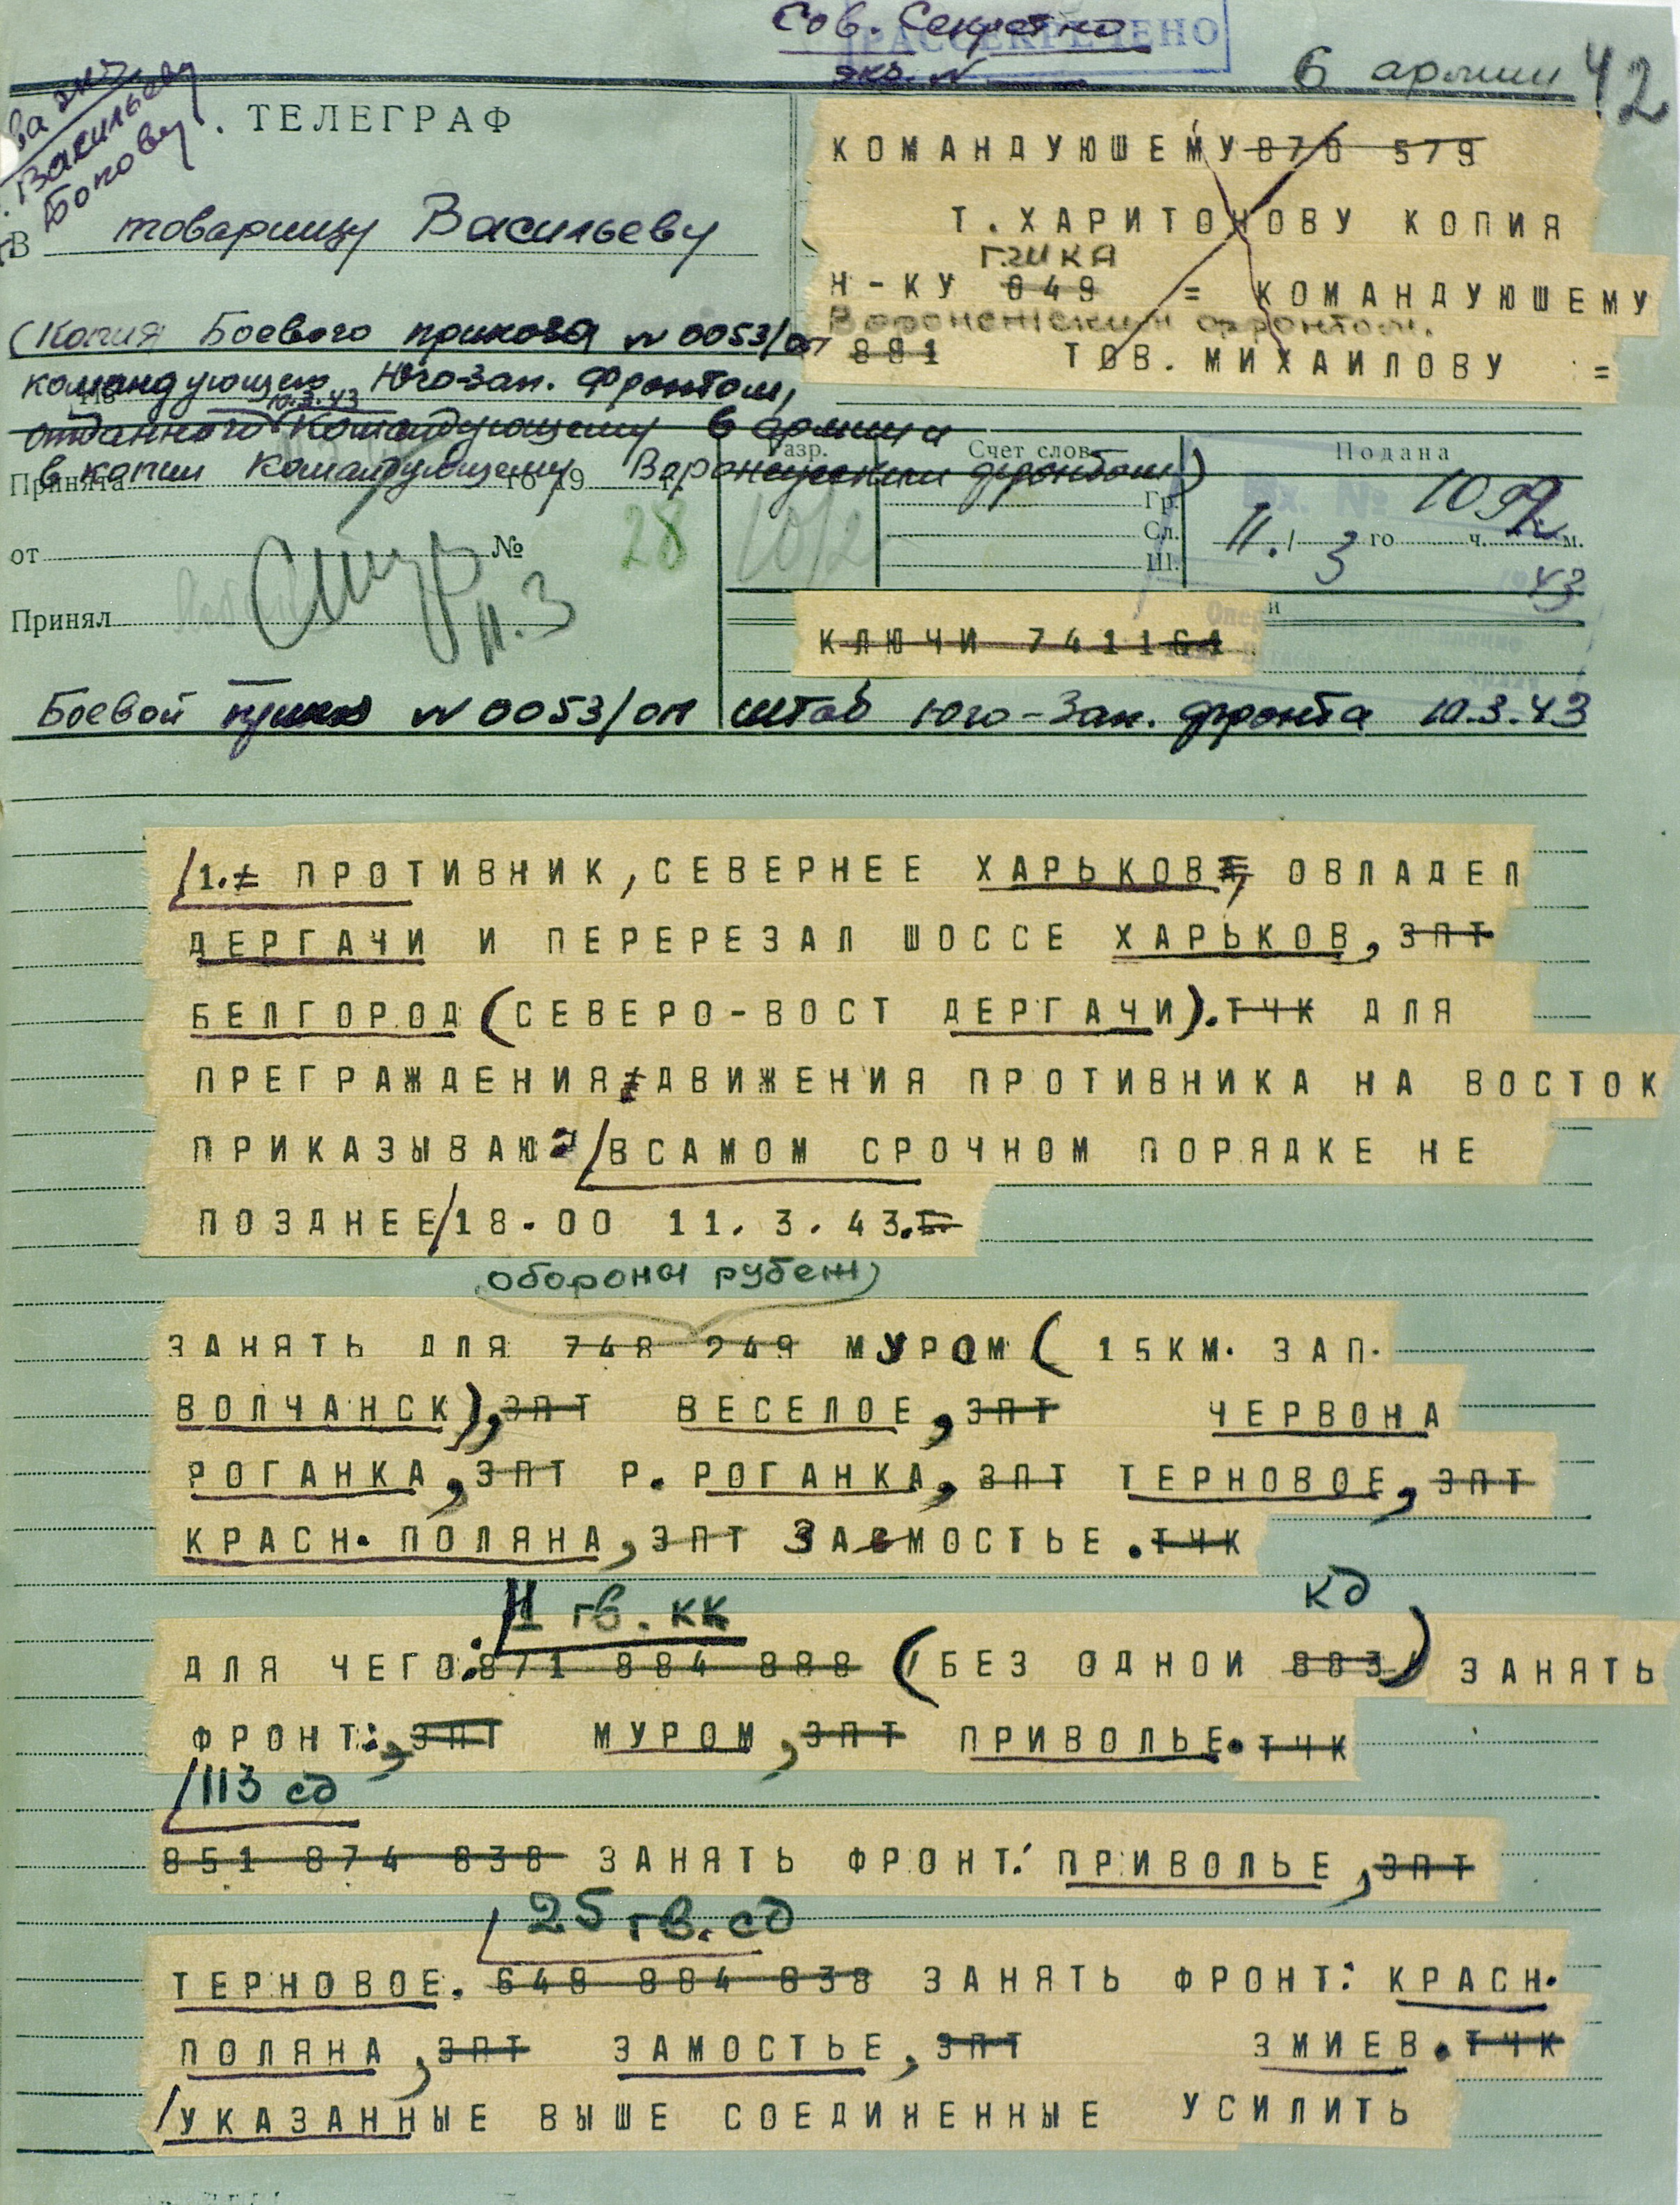 Сов. Секретно
РАССЕКРЕЧЕНО
экз. №
6 армии 42
Васильеву
Бокову
ТЕЛЕГРАФ
В товарищу Васильеву
КОМАНДУЮШЕМУ 870 579
Т. ХАРИТОНОВУ КОПИЯ
ГШКА
Н-КУ 049 = КОМАНДУЮШЕМУ
Воронежским фронтом.
881 ТОВ. МИХАИЛОВУ =
(Копия Боевого приказа №0053/оп
командующего Юго-Зап. Фронтом,
10.3.43
отданного Командующему 6 армии и
в копии Командующему Воронежским фронтом)
Принята го 19 г.
Разр.
Счет слов
Гр.
Сл.
Ш.
Подана
Вх. № 1092
11. 3 го ч. м.
43
от №
28
10/2
11.3
Принял
КЛЮЧИ 741161
Боевой приказ №0053/оп штаб Юго-Зап. фронта 10.3.43
1.= ПРОТИВНИК, СЕВЕРНЕЕ ХАРЬКОВ, ОВЛАДЕЛ
ДЕРГАЧИ И ПЕРЕРЕЗАЛ ШОССЕ ХАРЬКОВ, ЗПТ
БЕЛГОРОД (СЕВЕРО-ВОСТ ДЕРГАЧИ). ТЧК ДЛЯ
ПРЕГРАЖДЕНИЯ ДВИЖЕНИЯ ПРОТИВНИКА НА ВОСТОК
ПРИКАЗЫВАЮ: /ВСАМОМ СРОЧНОМ ПОРЯДКЕ НЕ
ПОЗДНЕЕ/18.00 11.3.43.
обороны рубеж
ЗАНЯТЬ ДЛЯ 748 249 МУРОМ (15КМ. ЗАП.
ВОЛЧАНСК), ЗПТ ВЕСЕЛОЕ, ЗПТ ЧЕРВОНА
РОГАНКА, ЗПТ Р. РОГАНКА, ЗПТ ТЕРНОВОЕ, ЗПТ
КРАСН. ПОЛЯНА, ЗПТ ЗАМОСТЬЕ. ТЧК
1 гв. кк кд
ДЛЯ ЧЕГО: 871 884 888 (БЕЗ ОДНОЙ 883) ЗАНЯТЬ
ФРОНТ:, ЗПТ МУРОМ, ЗПТ ПРИВОЛЬЕ. ТЧК
113 сд
851 874 838 ЗАНЯТЬ ФРОНТ: ПРИВОЛЬЕ, ЗПТ
25 гв. сд
ТЕРНОВОЕ. 648 884 838 ЗАНЯТЬ ФРОНТ: КРАСН.
ПОЛЯНА, ЗПТ ЗАМОСТЬЕ, ЗПТ ЗМИЕВ. ТЧК
/УКАЗАННЫЕ ВЫШЕ СОЕДИНЕННЫЕ УСИЛИТЬ